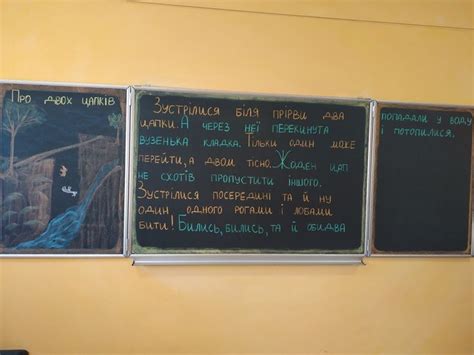 Про двох цапків
Зустрілися біля прірви два
цапки. А через неї перекинута
вузенька кладка. Тільки один може
перейти, а двом тісно. Жоден цап
не схотів пропустити іншого.
Зустрілися посередині та й ну
один одного рогами і лобами
бити! Бились, бились, та й обидва
попадали у воду
і потопилися.